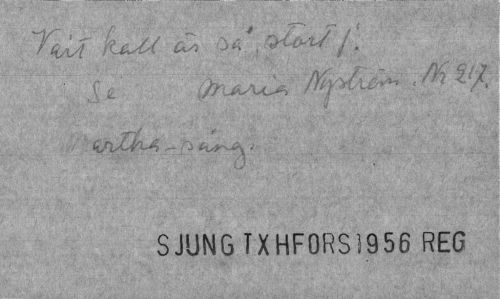 Vårt kall är så stort j.
Se Maria Nyström. Nr 217.
Martha-sång.
SJUNG TXHFORS1956 REG